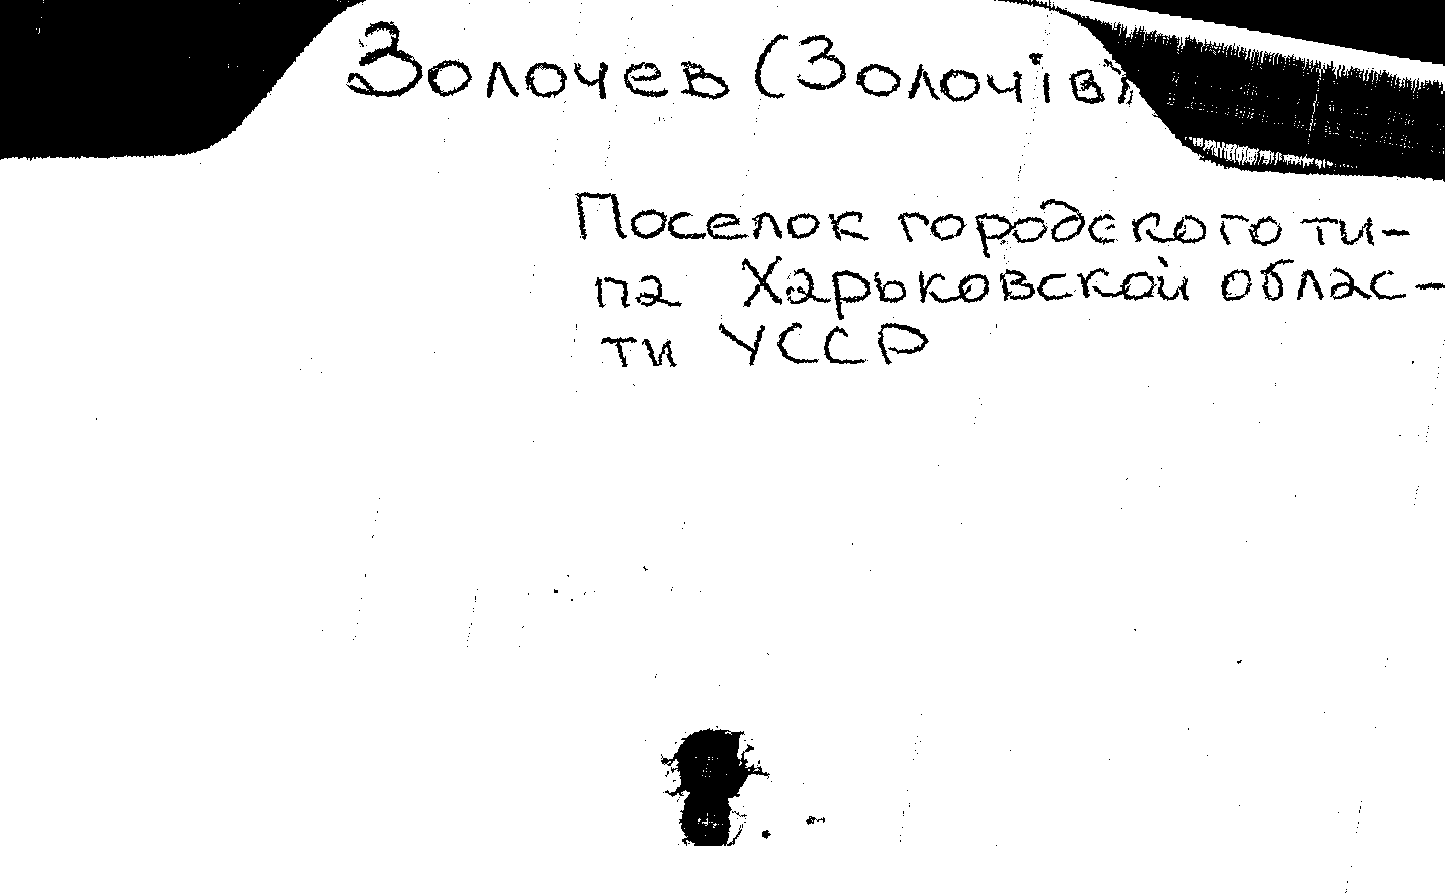 Золочев (Золочів)
Поселок городского ти-
па Харьковской облас-
ти УССР